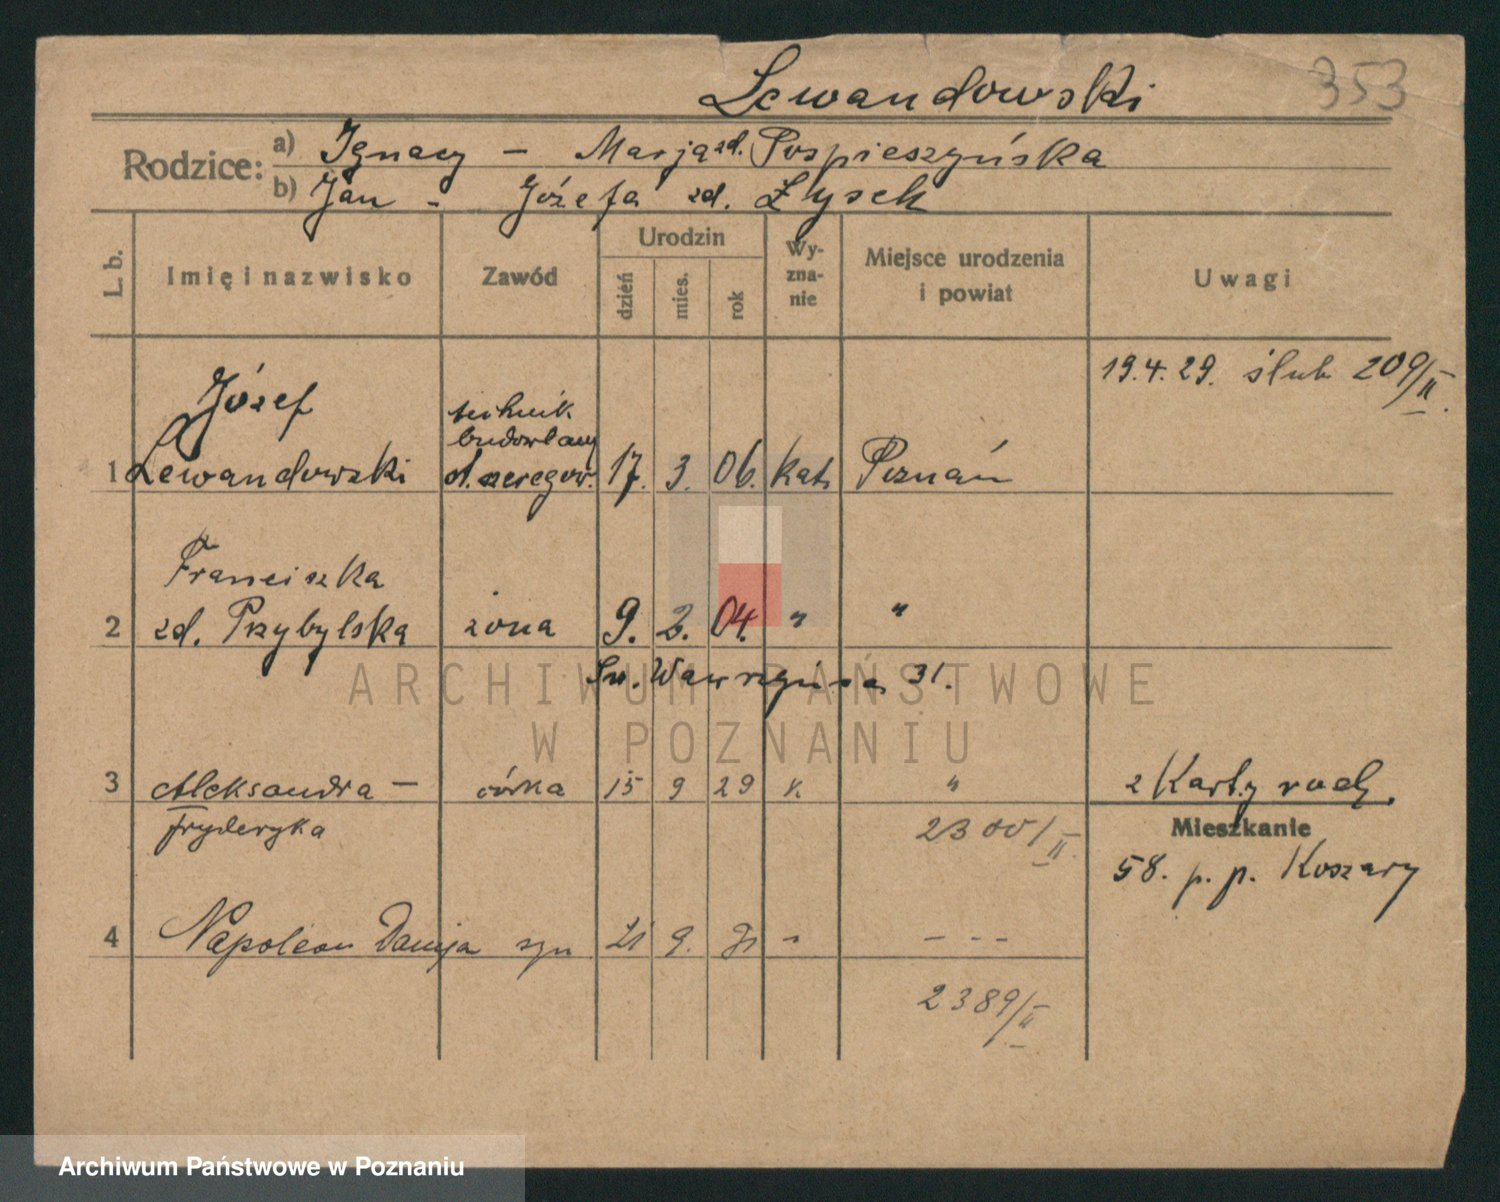 Lewandowski 353
Rodzice: a) Ignacy – Marja zd. Pospieszyńska
b) Jan - Józefa zd. Łysek
L. b. Imię i nazwisko Zawód Urodzin dzień mies. rok Wyznanie Miejsce urodzenia i powiat Uwagi
19.4.29. ślub 209/II.
Józef technik
budowlany
1 Lewandowski st. szeregow. 17. 3. 06. kat. Poznań
Franciszka
2 zd. Przybylska żona 9. 2. 04. " "
Św. Wawrzyńca 31.
3 Aleksandra – córka 15 9 29 k. " 2 Karty rodz.
Fryderyka 2300/II. Mieszkanie
58. p. p. Koszary
4 Napoleon syn 21 9. 31 " – - -
2389/II
ARCHIWUM PAŃSTWOWE
W POZNANIU
Archiwum Państwowe w Poznaniu